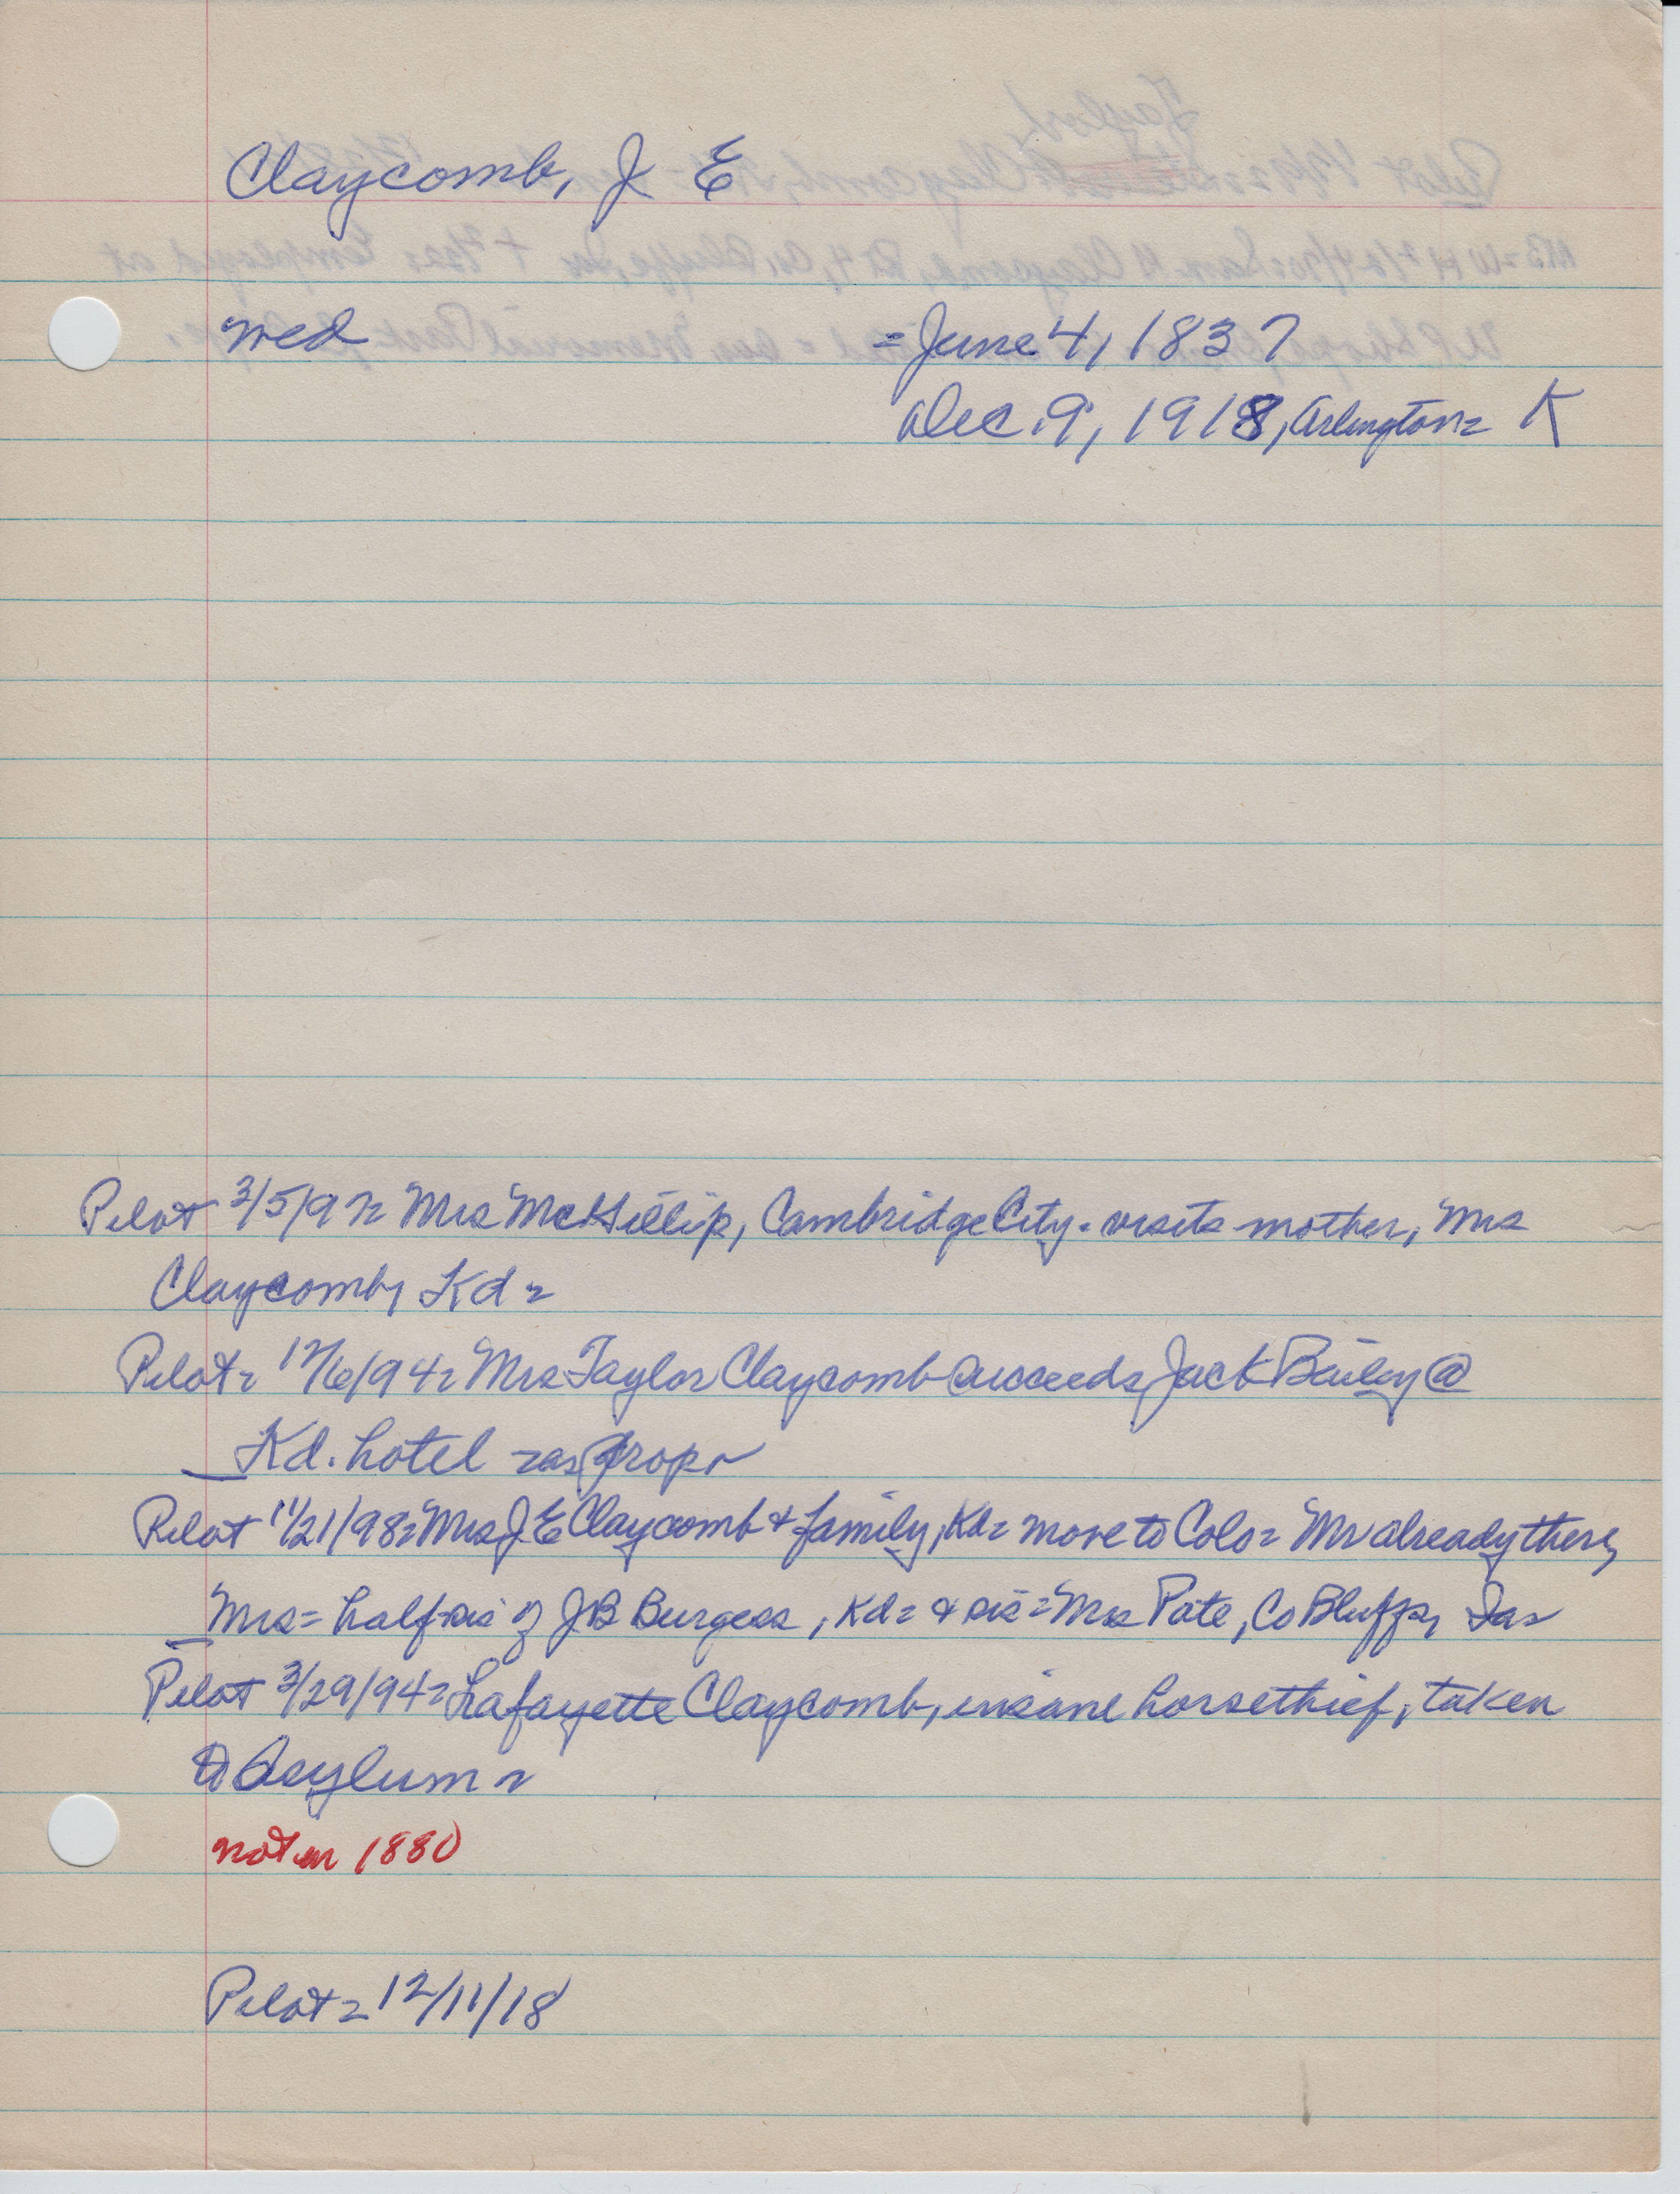 Claycomb, J E
wed = June 4, 1837
Dec. 9, 1918, Arlington = K
Pilot 3/5/97= Mrs McKillip, Cambridge City = visits mother, Mrs
Claycomb, Kd =
Pilot = 12/6/94= Mrs Taylor Claycomb succeeds Jack Bailey @
Kd. hotel = as propr
Pilot 11/21/98= Mrs J E Claycomb & family, Kd = move to Colo = Mr already there,
Mrs = half-sis of J B Burgess, Kd = & sis = Mrs Pate, Co Bluffs, Ia =
Pilot 3/29/94= Lafayette Claycomb, insane horsethief, taken
to Asylum =
not in 1880
Pilot = 12/11/18